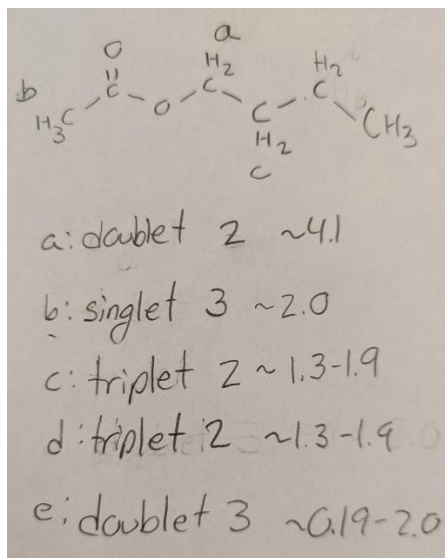 O a
b H2 H2
H3C C O C C CH3
C
H2
c
a: doublet 2 ~4.1
b: singlet 3 ~2.0
c: triplet 2 ~ 1.3-1.9
d: triplet 2 ~1.3-1.9
e: doublet 3 ~0.19-2.0